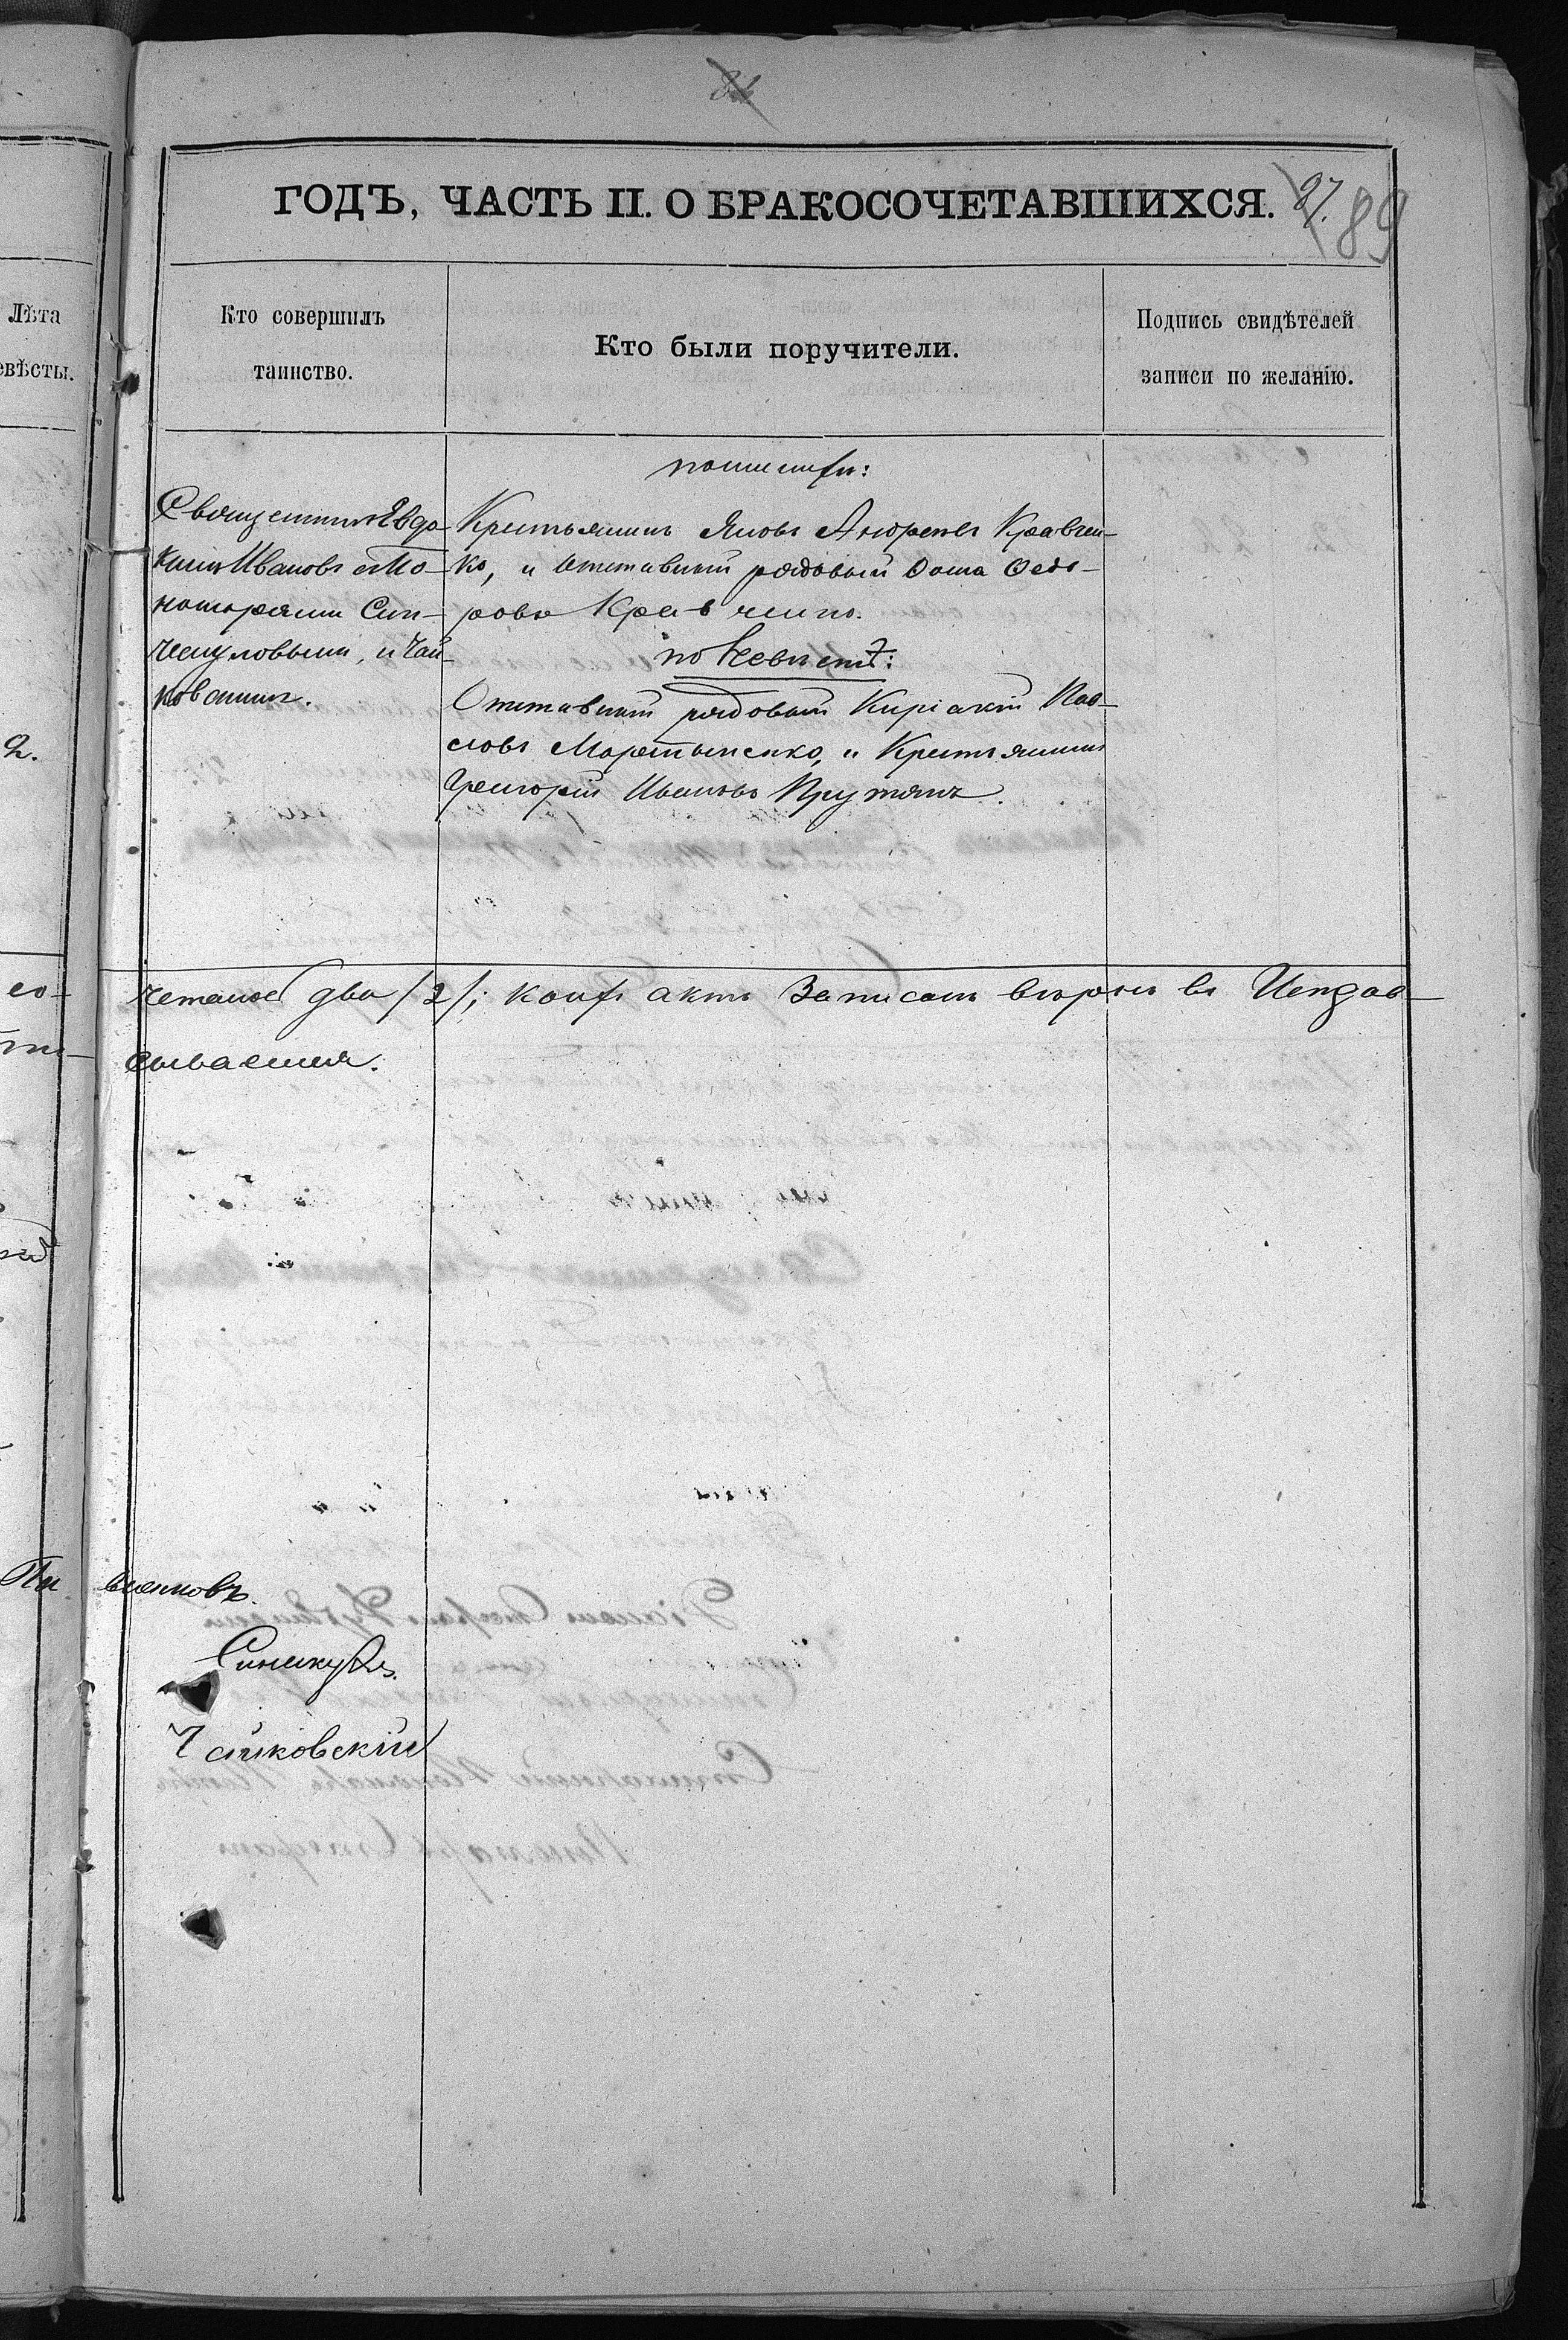 ГОДЪ, ЧАСТЬ II. О БРАКОСОЧЕТАВШИХСЯ.
87.
89
Лѣта
евѣсты.
Кто совершилъ
таинство.
Кто были поручители.
Подпись свидѣтелей
записи по желанію.
Священникъ Евдо-
кимъ Ивановъ съ По-
номарями Син-
и Чай-
ковскимъ.
по женихѣ:
Крестьянинъ Яковъ Андреевъ Кравчен-
ко, и Отставный рядовый Ѳома Ѳедо-
ровъ Кравченко.
по Невѣстѣ:
Отставный рядовый Киріакій Пав-
ловъ Мартыненко, и Крестьянинъ
Григорій Ивановъ Прутянъ.
2.
четаное два /2/; коихъ актъ Записанъ вѣрно въ
сываемся.
Синикулъ.
Чайковскій